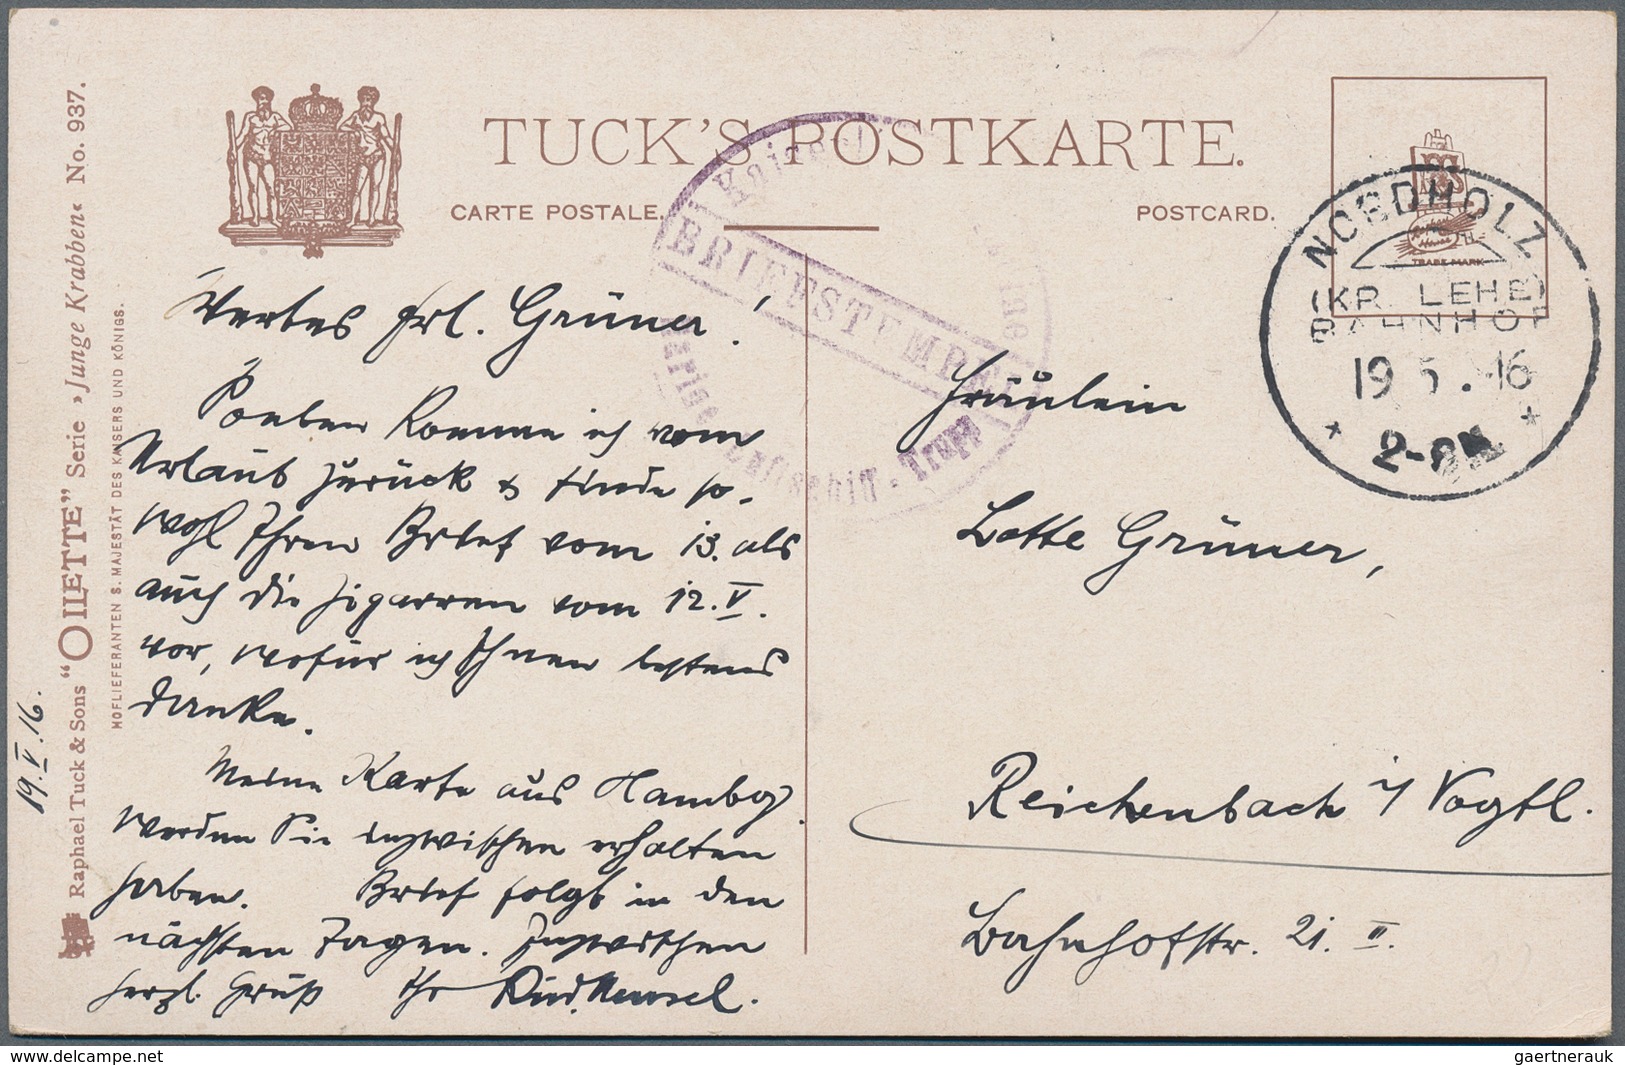 TUCK'S POSTKARTE.
CARTE POSTALE.
POSTCARD.
TRADE MARK
NORDHOLZ
(KR. LEHE)
BAHNHOF
19 5. 16
BRIEFSTEMPEL
Raphael Tuck & Sons “OILETTE” Serie »Junge Krabben« No. 937.
HOFLIEFERANTEN S. MAJESTÄT DES KAISERS UND KÖNIGS.
19. V. 16.
Wertes Frl. Grüner!
Soeben komme ich vom
Urlaub zurück & finde so-
wohl Ihren Brief vom 13. als
auch die Zigarren vom 12. V.
vor, wofür ich Ihnen bestens
danke.
Meine Karte aus Hambg.
werden Sie inzwischen erhalten
haben. Brief folgt in den
nächsten Tagen. Inzwischen
herzl. Gruß Ihr
Fräulein
Lotte Grüner,
Reichenbach i/ Vogtl.
Bahnhofstr. 21. II.
delcampe.net
gaertnerauk